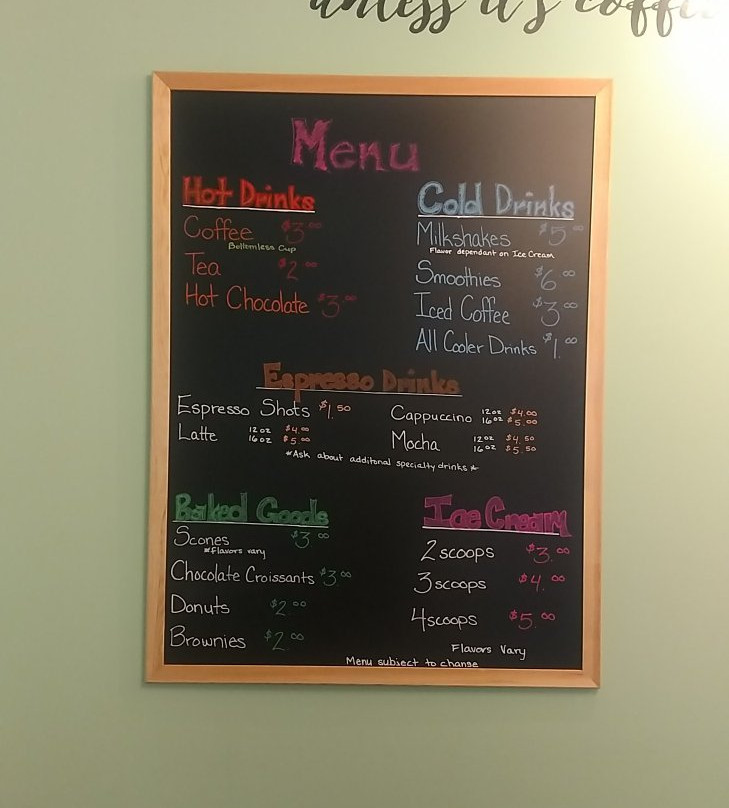 unless it's coffee
Menu
Hot Drinks
Coffee $3.00
Bottomless Cup
Tea $2.00
Hot Chocolate $3.00
Cold Drinks
Milkshakes $5.00
Flavor dependant on Ice Cream
Smoothies $6.00
Iced Coffee $3.00
All Cooler Drinks $1.00
Espresso Drinks
Espresso Shots $1.50
Latte 12oz $4.00
16oz $5.00
Cappuccino 12oz $4.00
16oz $5.00
Mocha 12oz $4.50
16oz $5.50
*Ask about additonal specialty drinks*
Baked Goods
Scones $3.00
*flavors vary
Chocolate Croissants $3.00
Donuts $2.00
Brownies $2.00
Ice Cream
2 scoops $3.00
3 scoops $4.00
4 scoops $5.00
Flavors Vary
Menu subject to change